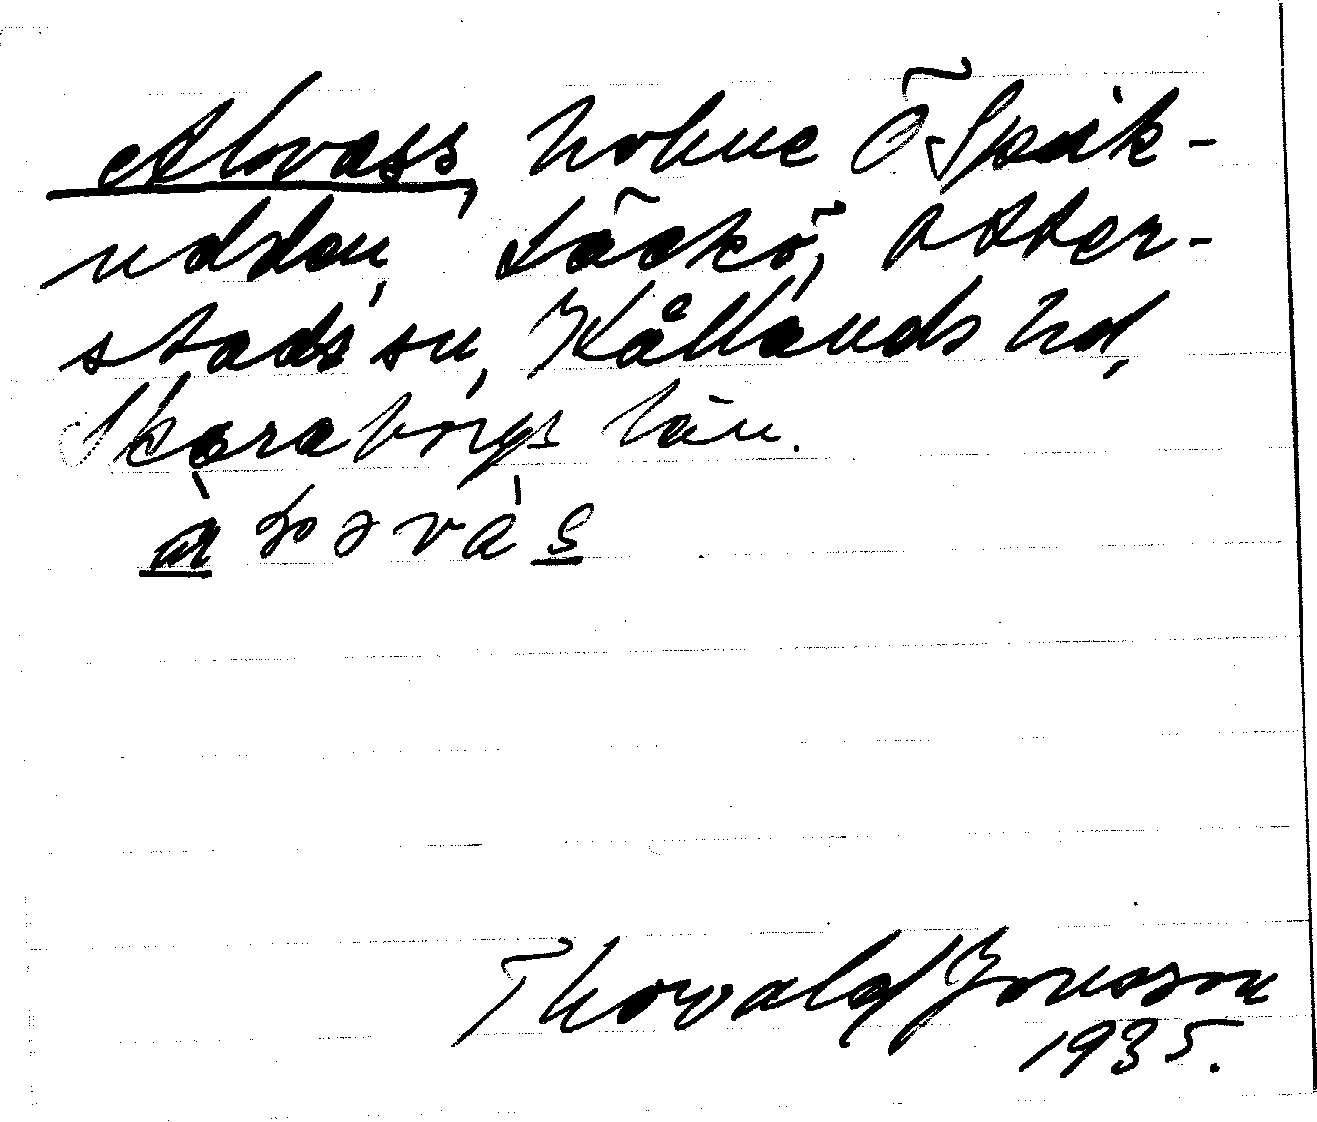 Alovass, holme Ö Spik-
udden, Läckö, Otter-
stads sn, Kållands hd,
Skaraborgs län.
Thorvald Jonsson
1935.